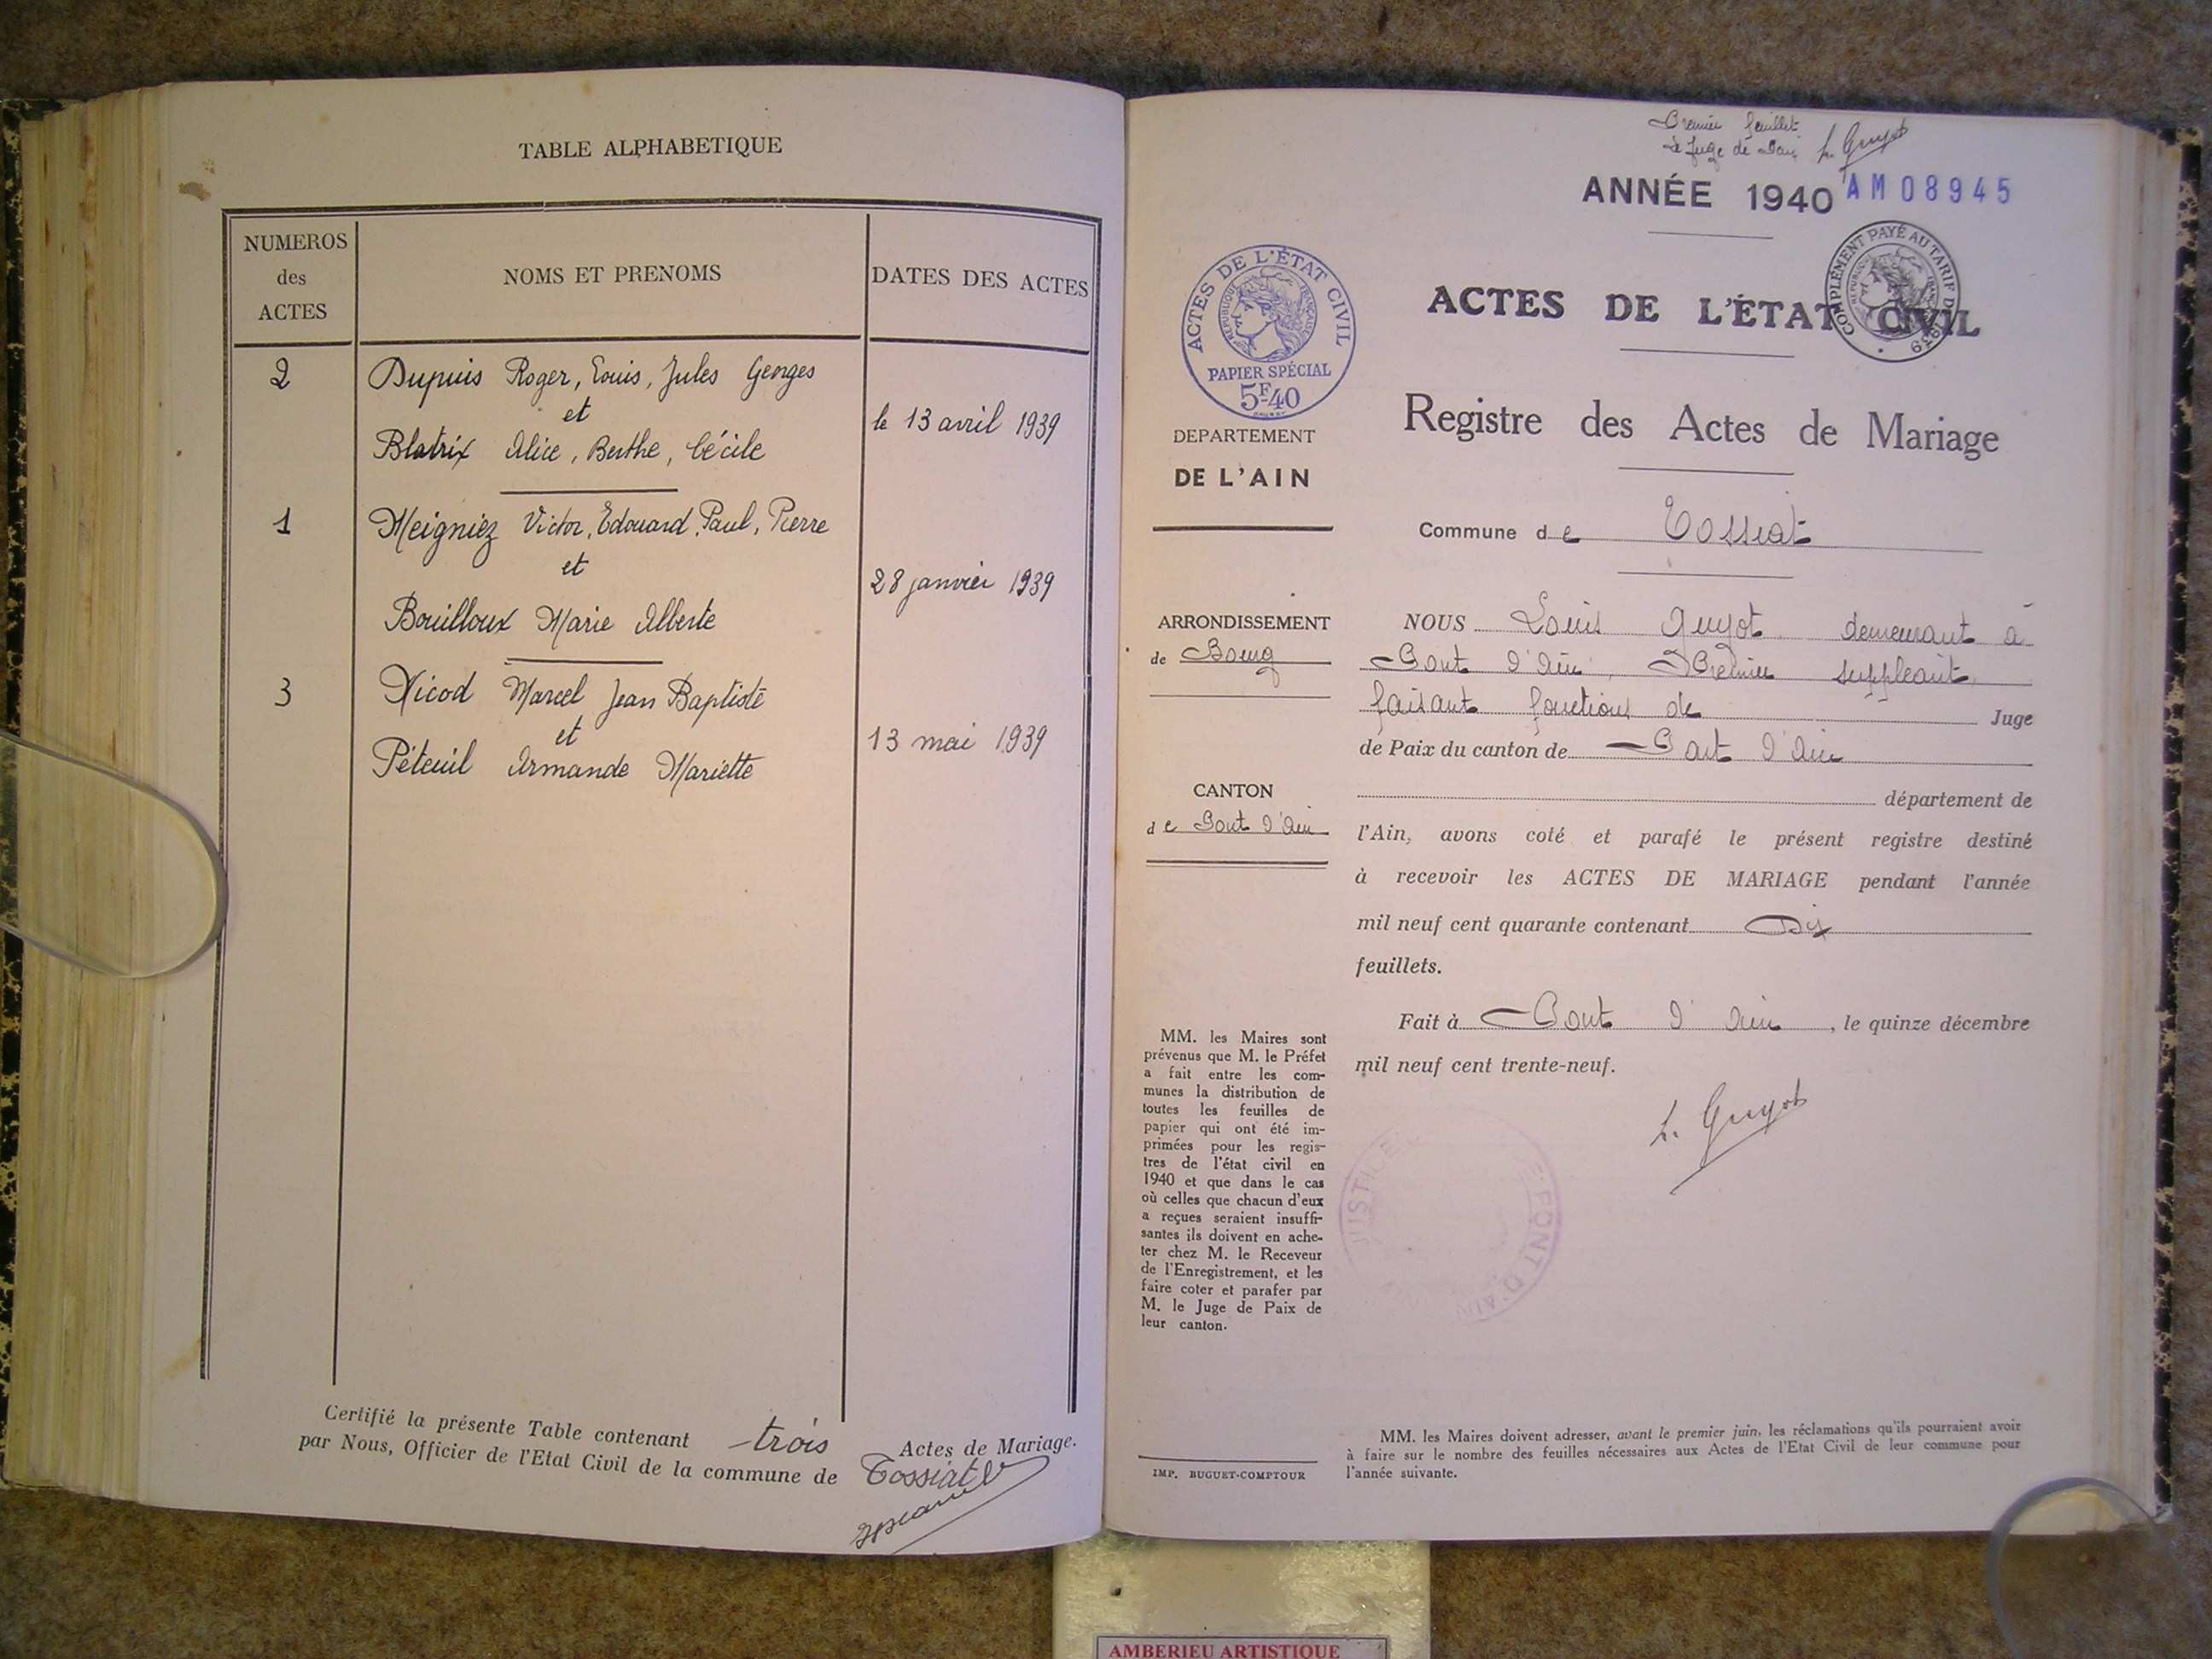 TABLE ALPHABETIQUE
NUMEROS
des
ACTES
NOMS ET PRENOMS
DATES DES ACTES
2
Dupuis Roger, Louis, Jules Georges
et
le 13 avril 1939
Blatrix Alice, Berthe, Cécile
1
Meigniez Victor, Edouard, Paul, Pierre
et
28 janvier 1939
Bouilloux Marie Alberte
3
Nicod Marcel Jean Baptiste
et
13 mai 1939
Péteuil Armande Mariette
Certifié la présente Table contenant trois Actes de Mariage.
par Nous, Officier de l'Etat Civil de la commune de Tossiat
Premier feuillet
Le Juge de Paix L. Guyot
ANNÉE 1940
AM08945
COMPLÉMENT PAYÉ AU TARIF DE 1939
ACTES DE L'ÉTAT CIVIL
RÉPUBLIQUE FRANÇAISE
PAPIER SPÉCIAL
5F40
ACTES DE L'ÉTAT CIVIL
Registre des Actes de Mariage
DEPARTEMENT
DE L'AIN
Commune de Tossiat
ARRONDISSEMENT
de Bourg
CANTON
de Pont d'Ain
NOUS Louis Guyot demeurant à
Pont d'Ain, Premier suppléant
faisant fonctions de Juge
de Paix du canton de Pont d'Ain
département de
l'Ain, avons coté et parafé le présent registre destiné
à recevoir les ACTES DE MARIAGE pendant l'année
mil neuf cent quarante contenant Dix
feuillets.
Fait à Pont d'Ain, le quinze décembre
mil neuf cent trente-neuf.
L. Guyot
MM. les Maires sont
prévenus que M. le Préfet
a fait entre les com-
munes la distribution de
toutes les feuilles de
papier qui ont été im-
primées pour les regis-
tres de l'état civil en
1940 et que dans le cas
où celles que chacun d'eux
a reçues seraient insuffi-
santes ils doivent en ache-
ter chez M. le Receveur
de l'Enregistrement, et les
faire coter et parafer par
M. le Juge de Paix de
leur canton.
IMP. BUGUET-COMPTOUR
MM. les Maires doivent adresser, avant le premier juin, les réclamations qu'ils pourraient avoir
à faire sur le nombre des feuilles nécessaires aux Actes de l'Etat Civil de leur commune pour
l'année suivante.
AMBERIEU ARTISTIQUE